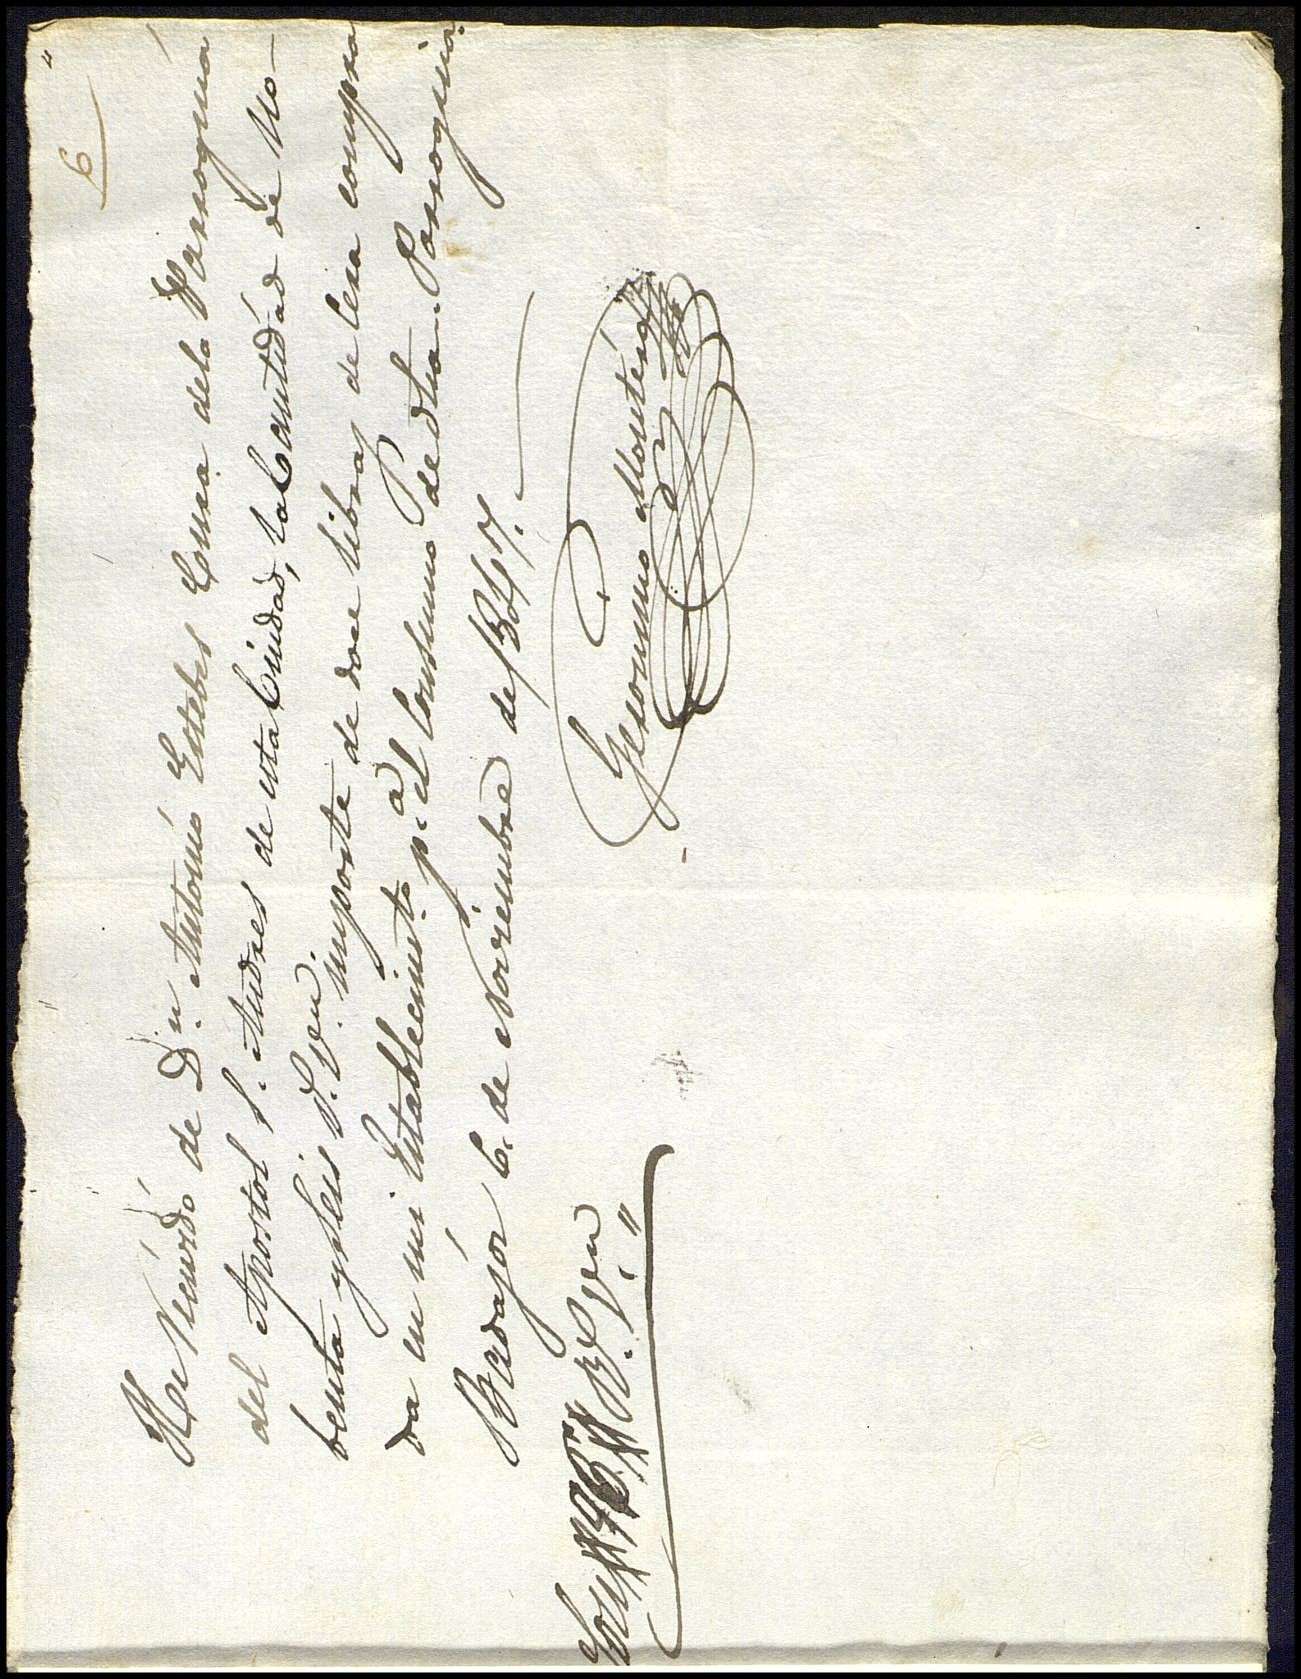 6
He Recivido de Dn. Antonio Estebes Cura dela Parroquia
del Apostol S. Andres de esta Ciudad, la Cantidad de No-
benta y seis R.s von. importe de doce libras de Cera compra
da en mi Establecimto. pa. el Consumo de dha. Parroquia.
Badajoz 6. de Noviembre de 1847.
Geronimo Montero
Son 96 Rs. von.